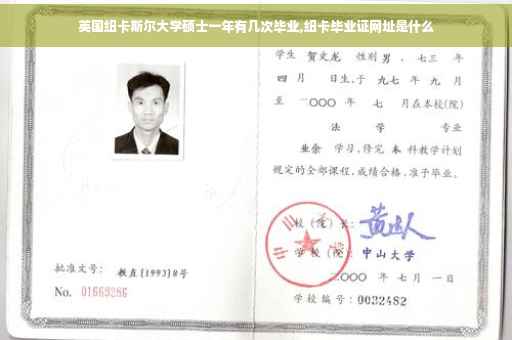 英国纽卡斯尔大学硕士一年有几次毕业,纽卡毕业证网址是什么
学生 贺文龙 性别 男 、七三 年
四 月 日生,于 九七 年 九 月
至 二〇〇〇 年 七 月在本校(院)
法 学 专业
业余 学习,修完 本 科教学计划
规定的全部课程,成绩合格,准予毕业。
校 (院) 长:
学 校 (院): 中山大学
二〇〇〇 年 七 月 一 日
批准文号: 教直[1993]8号
No. 01669286
学校编号: 0032482